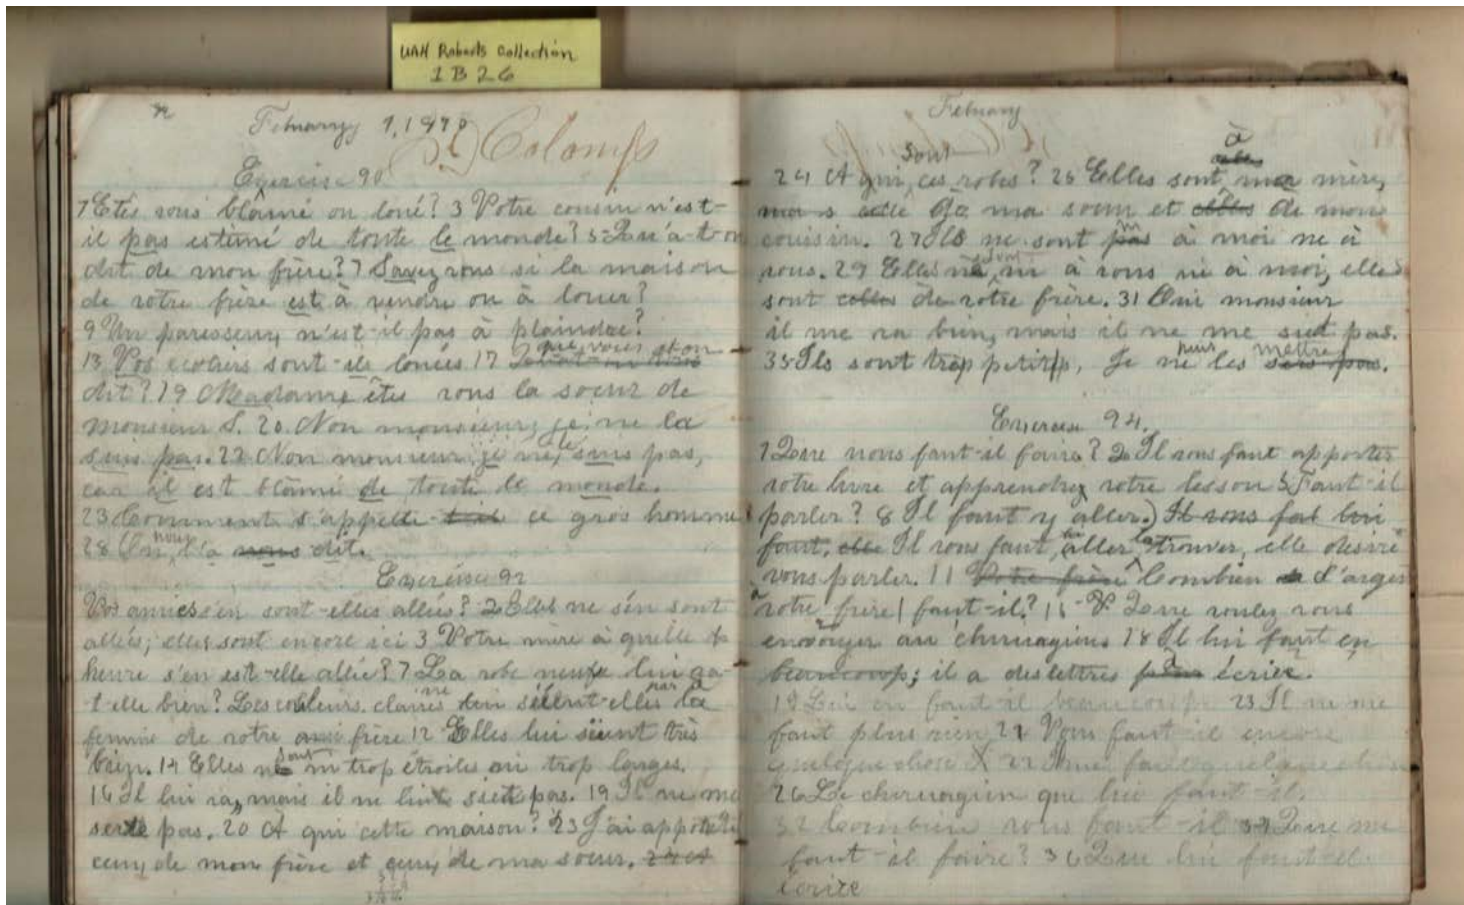 UAH Roberts Collection
1B26
February 1, 1870
Exercise 90
1 Etes vous blâmé ou loué? 3 Votre cousin n'est-
il pas estimé de toute le monde? 5 Qu'a-t-on
dit de mon frère? 7 Savez vous si la maison
de votre frère est à vendre ou à louer?
9 Un paresseux, n'est-il pas à plaindre?
13 Vos ecoliers sont-ils loués 17 que vous at on
dit? 19 Madame êtes vous la soeur de
monsieur S. 20 Non monsieur, je ne la
suis pas. 22 Non monsieur je ne le suis pas,
car il est blâmé de toute le monde.
23 Comment s'appelle ce gros homme
28 On nous l'a dit.
Exercise 92
Vos amies s'en sont-elles allées? 2 Elles ne s'en sont
allés; elles sont encore ici 3 Votre mère à quelle
heure s'en est-elle allée? 7 La robe neufe lui va-
t-elle bien? Les couleurs claires siéent-elles à la
femme de votre frère 12 Elles lui siéent très
bien. 14 Elles ne sont ni trop étroites ni trop larges.
16 Il lui va, mais il ne lui sied pas. 19 Il ne me
pas. 20 A qui cette maison? 23 J'ai apporté
ceux de mon frère et ceux de ma soeur. 24 A
February
24 A qui sont ces robes? 26 Elles sont à ma mère,
à ma soeur et de mon
cousin. 27 Ils ne sont ni à moi ne à
vous. 29 Elles ne sont ni à vous ni à moi, elles
sont de vôtre frère. 31 Oui monsieur
il me va bien, mais il ne me sied pas.
35 Ils sont trop petits, Je ne puis les mettre.
Exercise 94.
1 Que nous faut-il faire? 2 Il vous faut apporter
votre livre et apprendrez votre lesson 5 Faut-il
parler? 8 Il faut y aller. Il vous fat lui
faut, elle Il vous faut aller la trouver, elle desire
vous parler. 11 Votre frère Combien d'argent
à votre frère faut-il? 15 Que voulez vous
envoyer au chirurgien 18 Il lui faut en
beaucoup; il a des lettres à écrire.
19 Lui en faut-il beaucoup 23 Il ne me
faut plus rien 24 Vous faut-il encore
quelque chose
26 Le chirurgien que lui faut-il.
32 Combien vous faut-il 34 Que me
faut-il faire? 36 Que lui faut-il
écrire